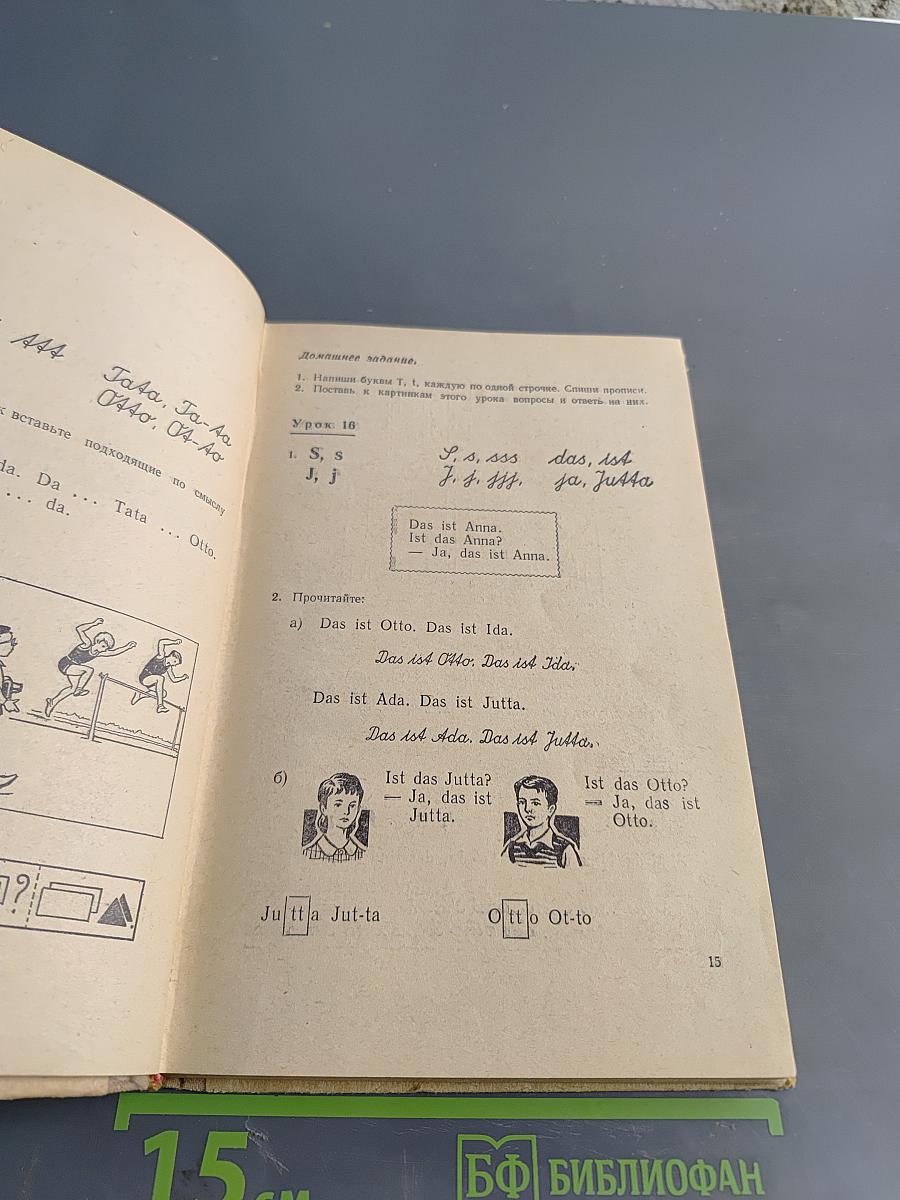 ttt
Tata, Ta-ta
Otto, Ot-to
к вставьте подходящие по смыслу
da. Da ... Tata ... Otto.
... da.
?
Домашнее задание.
1. Напиши буквы T, t, каждую по одной строчке. Спиши прописи.
2. Поставь к картинкам этого урока вопросы и ответь на них.
Урок 16
1. S, s S, s, sss das, ist
J, j J, j, jjj, ja, Jutta
Das ist Anna.
Ist das Anna?
— Ja, das ist Anna.
2. Прочитайте:
а) Das ist Otto. Das ist Ida.
Das ist Otto. Das ist Ida.
Das ist Ada. Das ist Jutta.
Das ist Ada. Das ist Jutta.
б) Ist das Jutta?
— Ja, das ist
Jutta.
Ist das Otto?
— Ja, das ist
Otto.
Jutta Jut-ta
Otto Ot-to
15
15 см
БФ БИБЛИОФАН